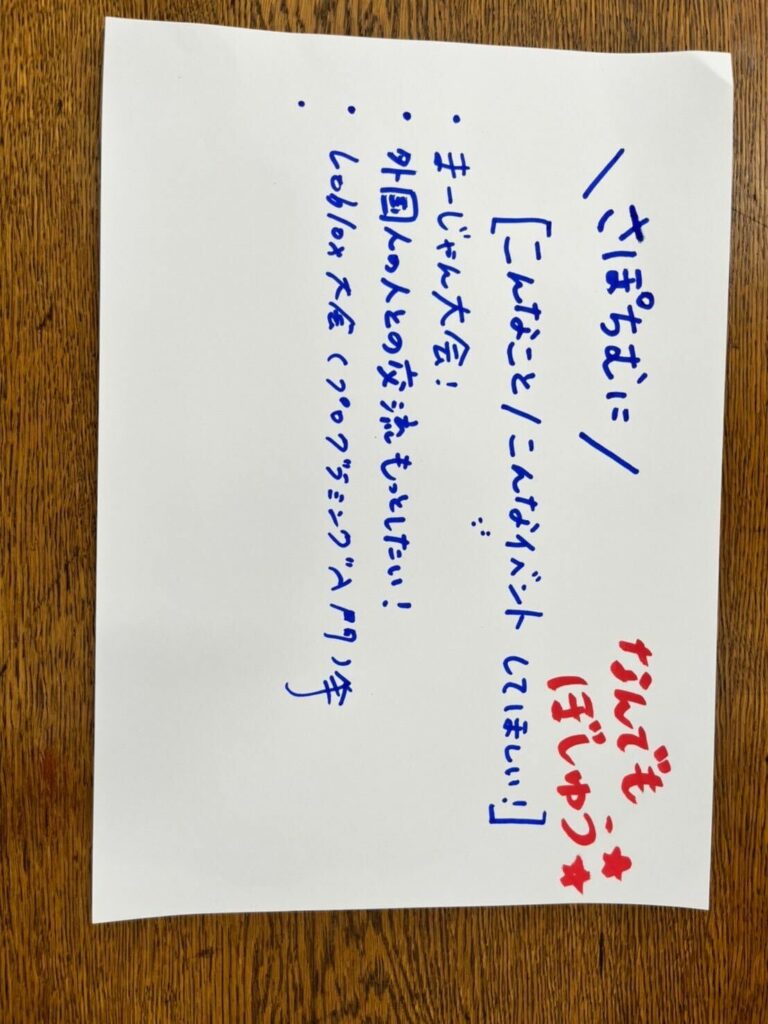 \ さぽちむに /
なんでも
ぼしゅう★★
[こんなこと/こんなイベントしてほしい!]
・まーじゃん大会!
・外国人の人との交流もっとしたい!
・Loblox大会(プログラミング入門)等
・